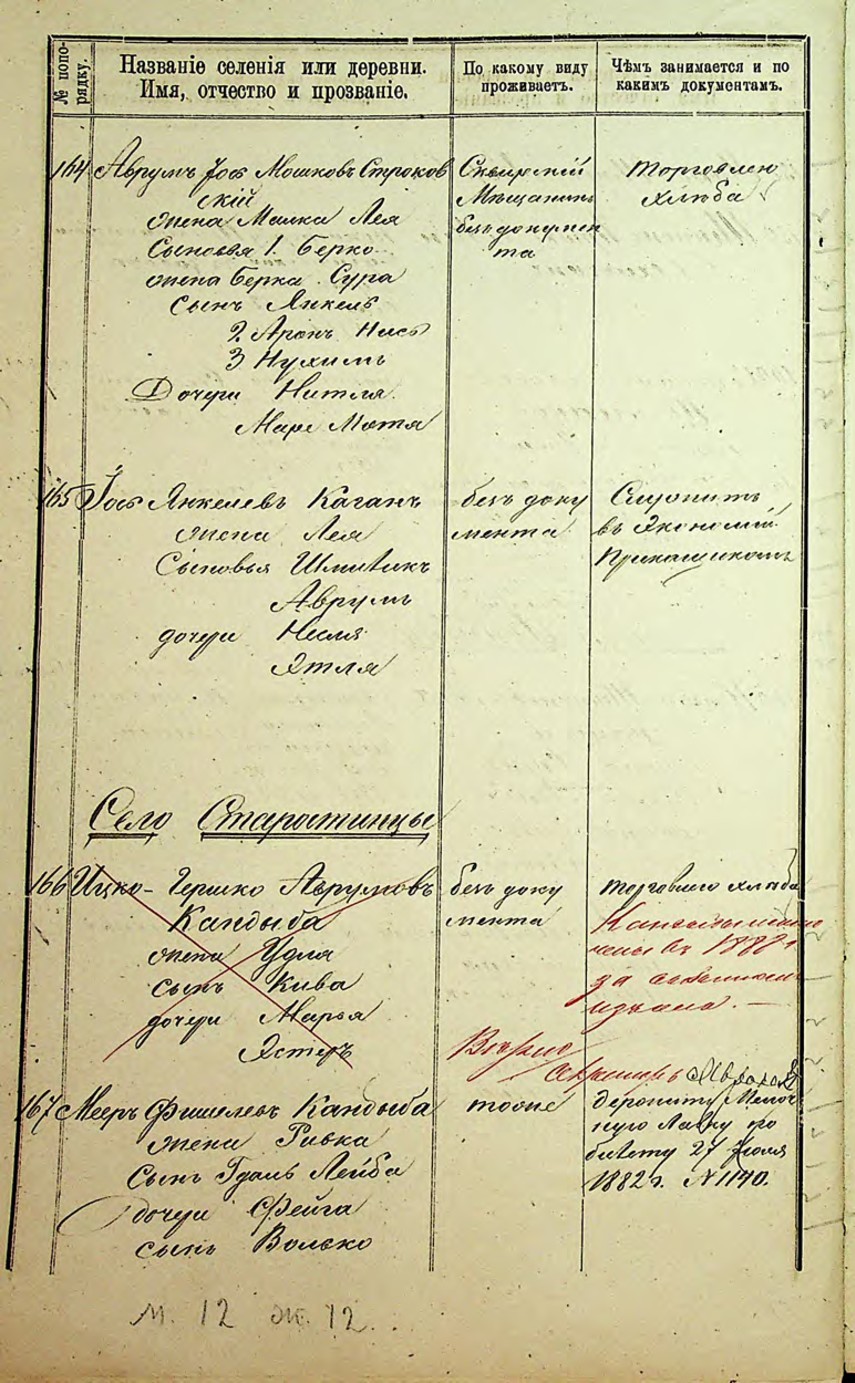 № попо-
рядку.
Названіе селенія или деревни.
Имя, отчество и прозваніе.
По какому виду
проживаетъ.
Чѣмъ занимается и по
какимъ документамъ.
164 Аврумъ Іось Мошковъ Строков
скій
жена Малка Лея
Сыновья 1. Берко
жена Берка Сура
Сынъ Янкель
2. Аронъ Нись
3 Нухимъ
Дочери Хитля
Маре Мотя
Сквирскій
Мѣщанинъ
безъ докумен
та
торговлею
хлѣба
165 Іось Янкелевъ Каганъ
жена Лея
Сыновья Шмиликъ
Аврумъ
дочери Несля
Этля
безъ доку
мента
Служитъ
въ Экономіи
Прикащикомъ
Село Старостинцы
166 Ицко-Гершко Аврумовъ
Кандыба
жена Удля
сынъ Кива
дочери Марья
Эстеръ
безъ доку
мента
торговлею хлѣба
въ 1882 г
за
Вѣрно
167 Мееръ Фишелевъ Кандыба
жена Ривка
Сынъ Гдаль Лейба
дочери Фейга
сынъ Волько
тоже
держитъ Мелоч
ную Лавку по
билету 27 Іюля
1882 г. № 1140.
м. 12 ж. 12.